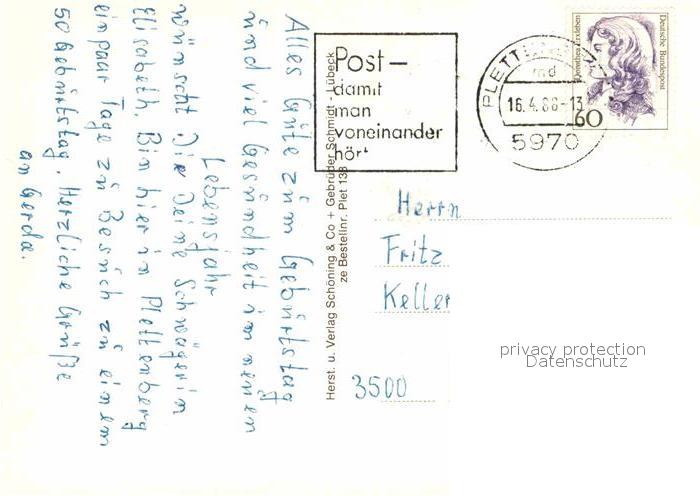 Alles Gute zum Geburtstag
und viel Gesundheit im neuen
Lebensjahr
wünscht Dir Deine Schwägerin
Elisabeth. Bin hier in Plettenberg
ein paar Tage zu Besuch zu einem
50 Geburtstag. Herzliche Grüße
an Gerda.
Herst. u. Verlag Schöning & Co + Gebrüder Schmidt - Lübeck
ze Bestellnr. Plet 138
Post –
damit
man
voneinander
hört
16.4.88-13
5970
Deutsche Bundespost
Dorothea Erxleben
60
Herrn
Fritz
Keller
3500
privacy protection
Datenschutz